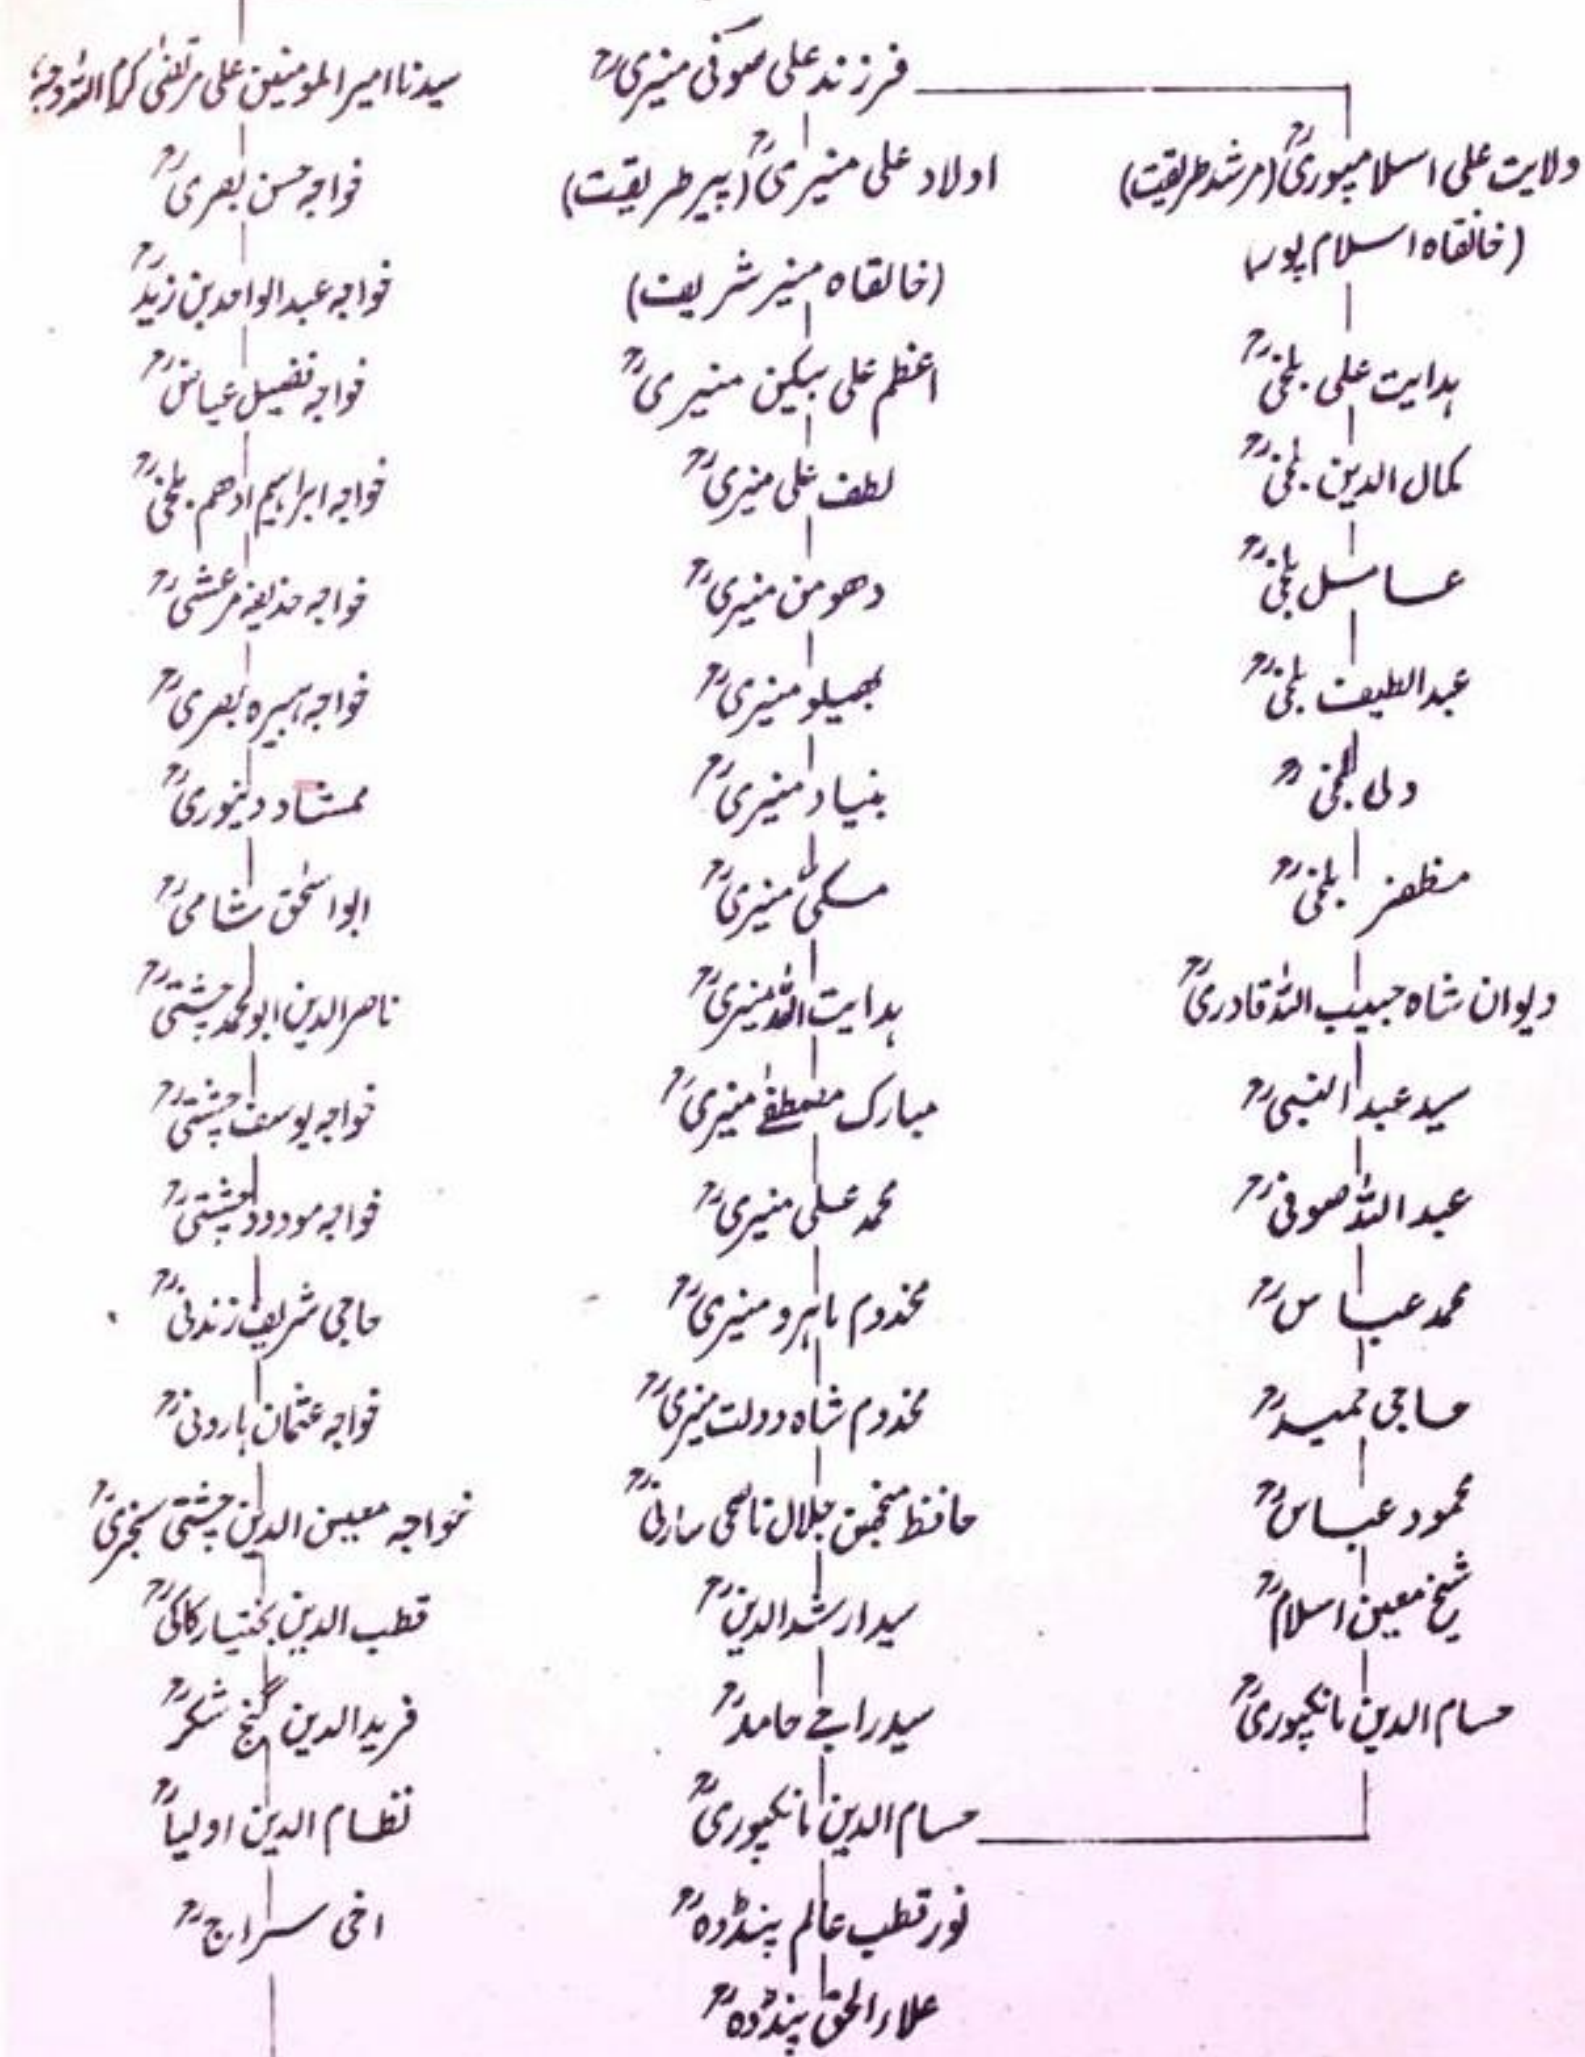 فرزند علی صوفی منیریؒ
ولایت علی اسلامپوریؒ (مرشد طریقت)
(خانقاہ اسلام پور)
ہدایت علی بلخیؒ
کمال الدین بلخیؒ
عاسل بلخیؒ
عبد الطیف بلخیؒ
ولی بلخیؒ
مظفر بلخیؒ
دیوان شاہ حبیب اللہ قادریؒ
سید عبد النبیؒ
عبد اللہ صوفیؒ
محمد عباسؒ
حاجی حمیدؒ
محمود عباسؒ
شیخ معین اسلامؒ
حسام الدین مانکپوریؒ
اولاد علی منیریؒ (پیر طریقت)
(خانقاہ منیر شریف)
اعظم علی بیکین منیریؒ
لطف علی منیریؒ
دھومن منیریؒ
بھیلو منیریؒ
بنیاد منیریؒ
مکی منیریؒ
ہدایت اللہ منیریؒ
مبارک مصطفےٰ منیریؒ
محمد علی منیریؒ
مخدوم ماہرو منیریؒ
مخدوم شاہ دولت منیریؒ
حافظ منجھن جلال ناصحی سارنیؒ
سید ارشد الدینؒ
سید راجے حامدؒ
حسام الدین مانکپوریؒ
نور قطب عالم پنڈوہؒ
علاء الحق پنڈوہؒ
سیدنا امیر المومنین علی مرتضیٰ کرم اللہ وجہہ
خواجہ حسن بصریؒ
خواجہ عبد الواحد بن زیدؒ
خواجہ فضیل عیاضؒ
خواجہ ابراہیم ادھم بلخیؒ
خواجہ حذیفہ مرعشیؒ
خواجہ ہبیرہ بصریؒ
ممشاد دینوریؒ
ابو اسحٰق شامیؒ
ناصر الدین ابو محمد چشتیؒ
خواجہ یوسف چشتیؒ
خواجہ مودود چشتیؒ
حاجی شریف زندنیؒ
خواجہ عثمان ہارونیؒ
خواجہ معین الدین چشتی سجزیؒ
قطب الدین بختیار کاکیؒ
فرید الدین گنج شکرؒ
نظام الدین اولیاؒ
اخی سراجؒ